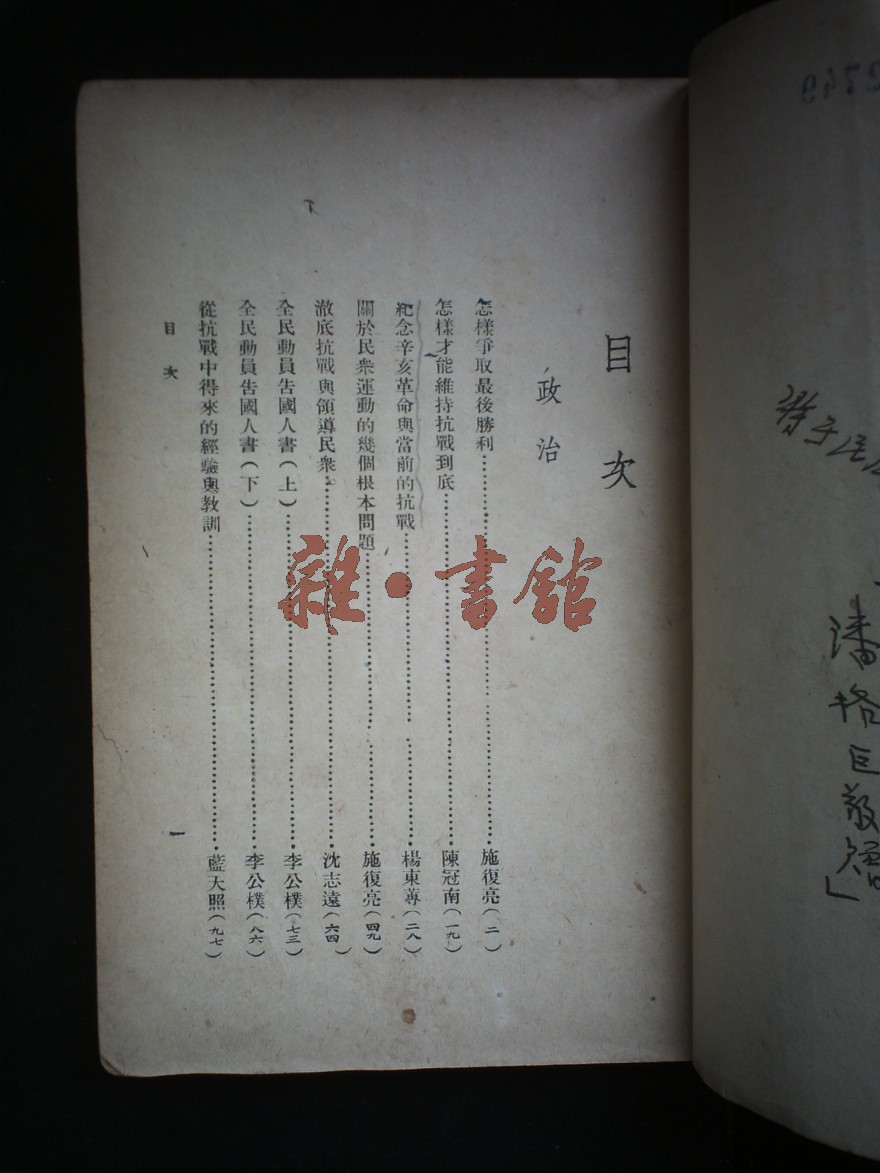 2749
潘
目次
政治
怎樣爭取最後勝利……施復亮(二)
怎樣才能維持抗戰到底……陳冠南(一九)
紀念辛亥革命與當前的抗戰……楊東蓴(二八)
關於民衆運動的幾個根本問題……施復亮(四九)
澈底抗戰與領導民衆……沈志遠(六四)
全民動員告國人書(上)……李公樸(七三)
全民動員告國人書(下)……李公樸(八六)
從抗戰中得來的經驗與教訓……藍大照(九七)
目次
一
雜·書館